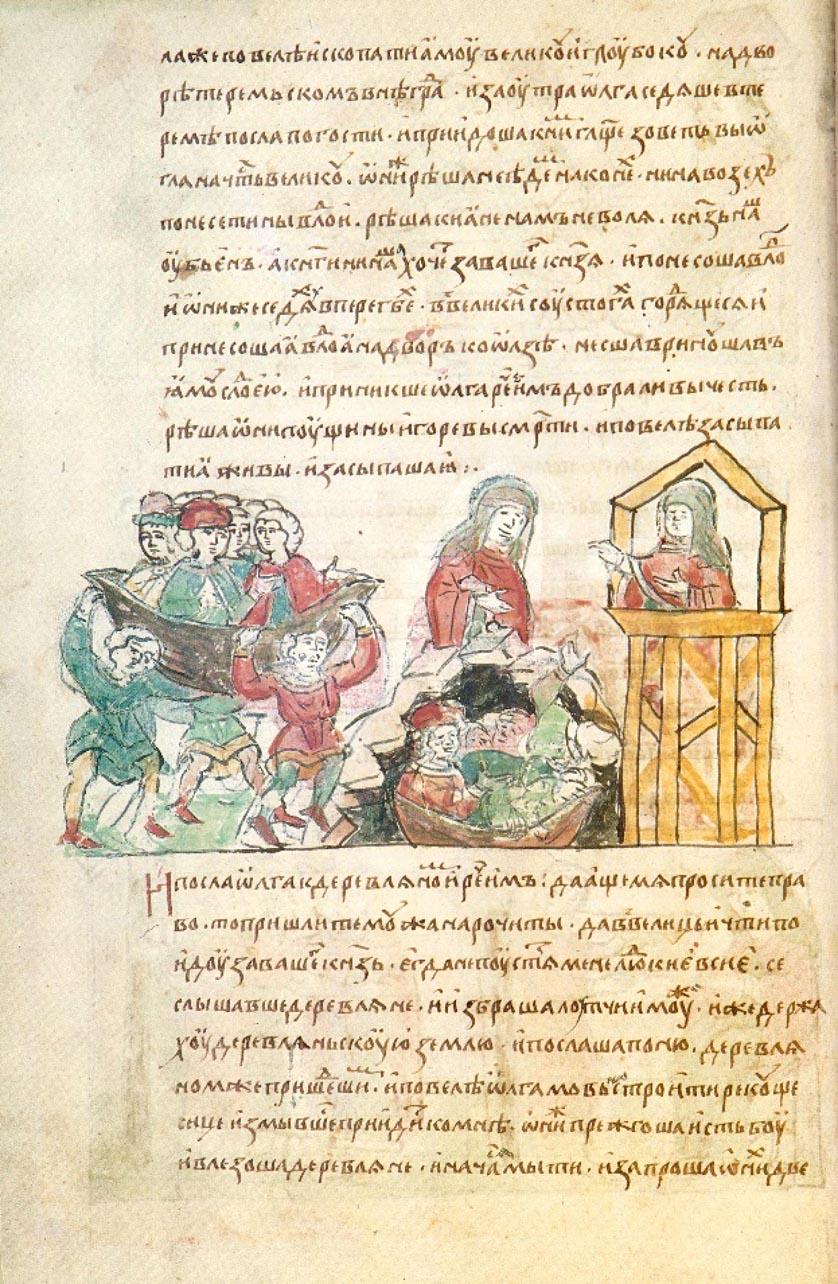 лаже повелѣ ископати ꙗмоу великоу и глоубокоу · на дво
рѣ теремьскомъ внѣ гра҃ · и заоутра ѡлга седѧше в те
ремѣ посла по гости · и приидоша к ни гл҃ще зоветь вы ѡ
лга на чт҃ь великоу · ѡни ж рѣша не ѣдем на коне · ни на возехъ
понесете ны в лоⷣи · рѣша киꙗне намъ неволѧ · кнѧзь нашь
оубьенъ · а кнгини наша хоче за вашь кнзѧ · и понесоша ꙗ в лоⷣ
и ѡни же седѧхоу в перегбехъ · въ великихъ соустогахъ гордѧщесѧ и
принесоша ꙗ в лоⷣ ꙗ на дворъ ко ѡлзѣ · несша вриноуша въ
ꙗмоу с лоⷣею · и приникши ѡлга реⷱ имъ добра ли вы честь ·
рѣша ѡни поущи ны игоревы смр҃ти · и повелѣ засыпа
ти ꙗ живы · и засыпаша ю :·
И посла ѡлга к деревлѧномъ и реⷱ имъ : да аще мѧ просите пра
во · то пришлите моужа нарочиты · да въ велицьи чт҃и по
идоу за вашь кнзь · егда не поустѧ мене людⷷ киевсие · се
слышавше деревлѧне · и избраша лоутчии моужи · иже держа
хоу деревлѧньскоую землю · и послаша по ню · деревлѧ
номже пришешим · и повелѣ ѡлга мовь строити рекоуще
сице измывшесѧ приидите ко мнѣ · ѡни ж прежгоша истьбоу
и влезоша деревлѧне · и начаша мыти · и запроша ѡ них две